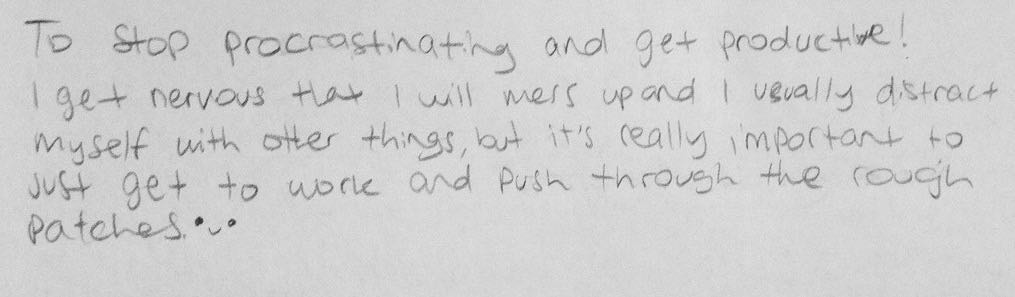 To stop procrastinating and get productive!
I get nervous that I will mess up and I usually distract
myself with other things, but it's really important to
just get to work and push through the rough
patches.